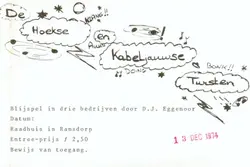 De
KABONG!
Hoekse
en
AUW!
Kabeljauwse
BOINK!!
DOINS
Twisten
Blijspel in drie bedrijven door D.J. Eggenoor
Datum: 13 DEC. 1974
Raadhuis in Ramsdorp
Entree-prijs f 2,50
Bewijs van toegang.